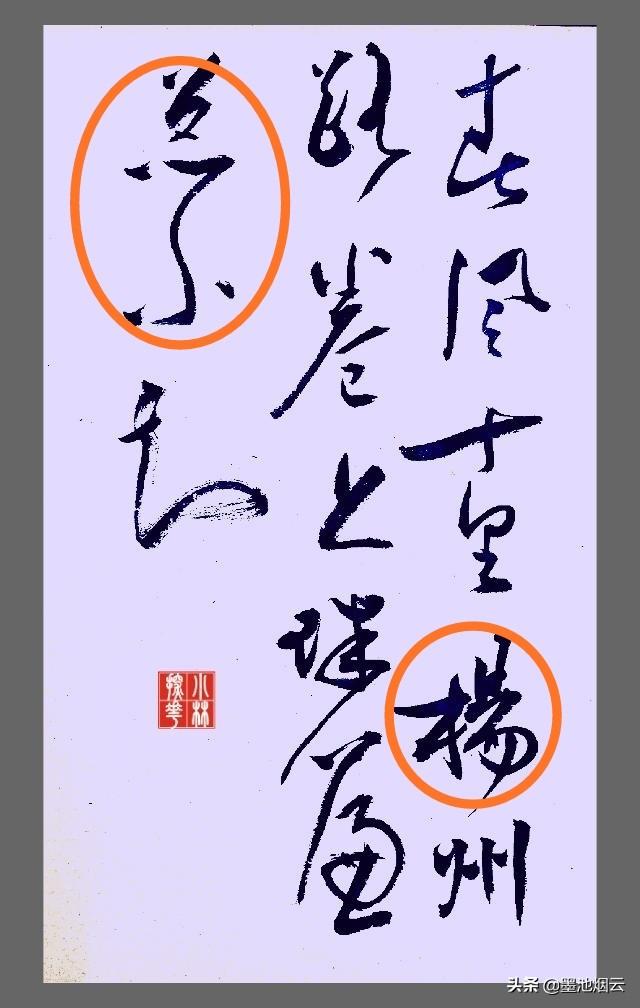 春风十里楊州
路卷上珠簾
总不如
小林
头条 @墨池烟云